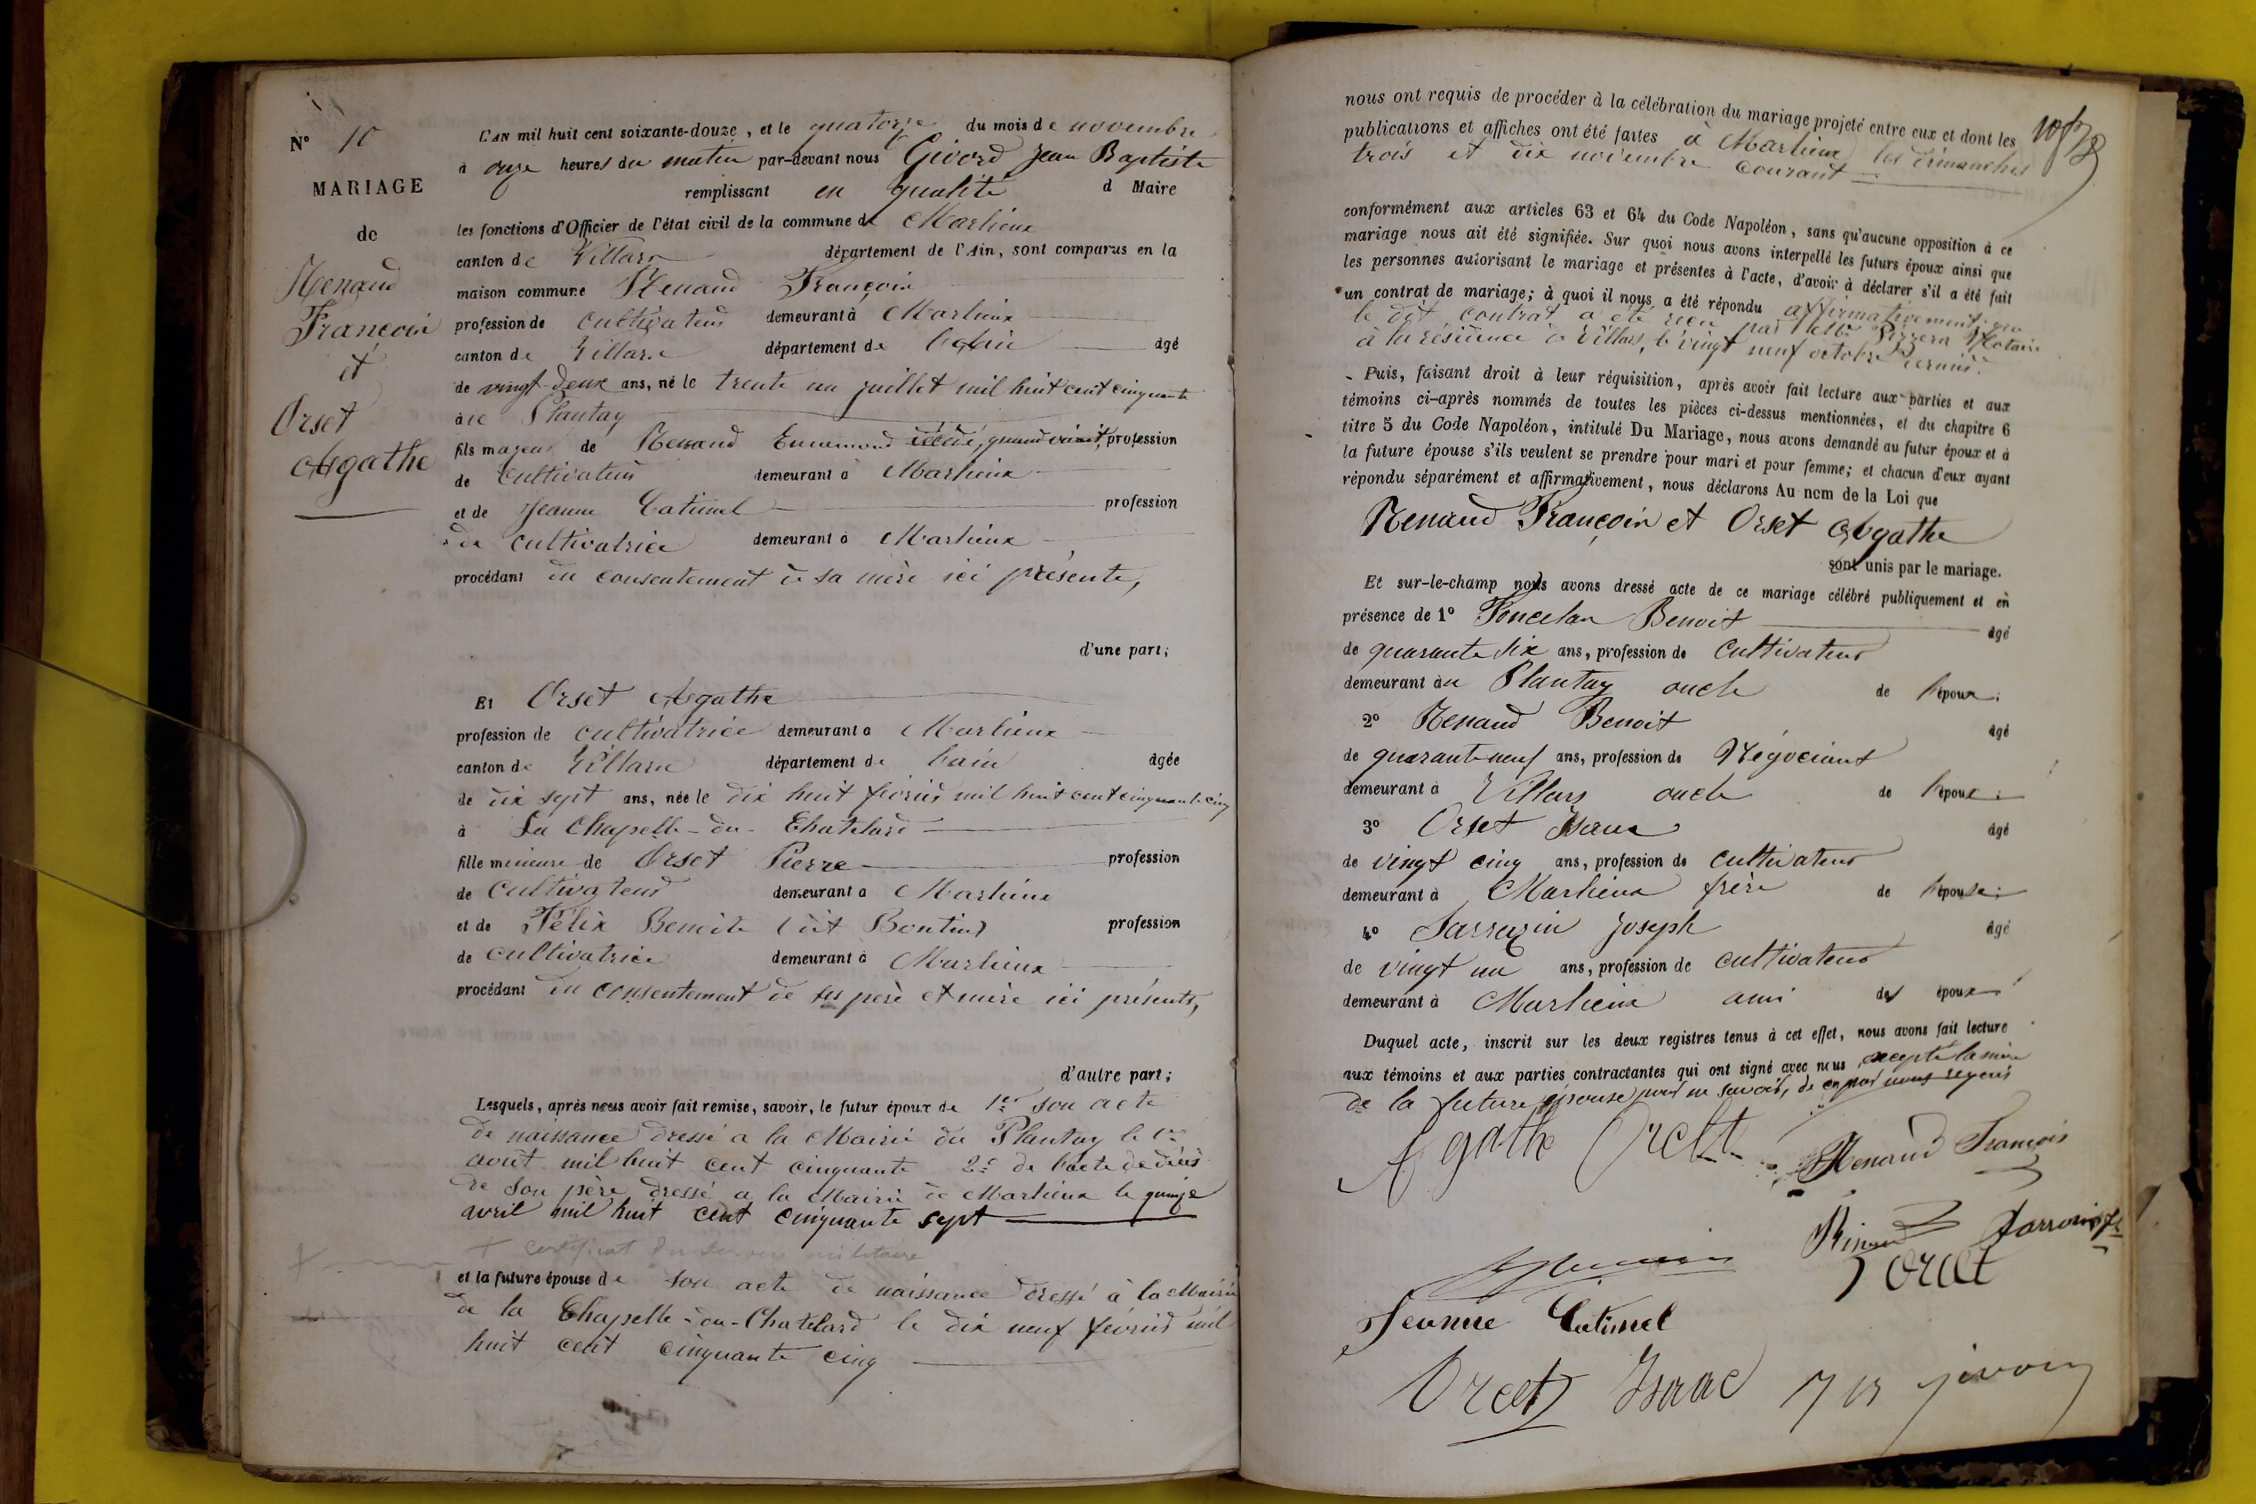 N° 10
MARIAGE
de
Renaud
François
et
Orset
Agathe
L'AN mil huit cent soixante-douze, et le quatorze du mois de novembre
à onze heures du matin par-devant nous Givord Jean Baptiste
remplissant en qualité d Maire
les fonctions d'Officier de l'état civil de la commune de Marlieux
canton de Villars département de l'Ain, sont comparus en la
maison commune Renaud François
profession de cultivateur demeurant à Marlieux
canton de Villars département de l'ain âgé
de vingt-deux ans, né le trente un juillet mil huit cent cinquante
à Plantay
fils majeur de Renaud Ennemond décédé, quand vivait, profession
de cultivateur demeurant à Marlieux
et de Jeanne Catimel profession
de cultivatrice demeurant à Marlieux
procédant du consentement de sa mère ici présente,
d'une part;
Et Orset Agathe
profession de cultivatrice demeurant à Marlieux
canton de Villars département de l'ain âgée
de dix sept ans, née le dix huit février mil huit cent cinquante cinq
à La Chapelle-du-Chatelard
fille mineure de Orset Pierre profession
de cultivateur demeurant à Marlieux
et de Félix Benoite (dit Bontin) profession
de cultivatrice demeurant à Marlieux
procédant du consentement de ses père et mère ici présents,
d'autre part;
Lesquels, après nous avoir fait remise, savoir, le futur époux de 1er son acte
de naissance dressé à la Mairie du Plantay le 1er
août mil huit cent cinquante 2e de l'acte de décès
de son père dressé à la Mairie de Marlieux le quinze
avril mil huit cent cinquante sept
+ certificat du service militaire
et la future épouse de son acte de naissance dressé à la Mairie
de la Chapelle-du-Chatelard le dix neuf février mil
huit cent cinquante cinq
nous ont requis de procéder à la célébration du mariage projeté entre eux et dont les
publications et affiches ont été faites à Marlieux les dimanches
trois et dix novembre courant
conformément aux articles 63 et 64 du Code Napoléon, sans qu'aucune opposition à ce
mariage nous ait été signifiée. Sur quoi nous avons interpellé les futurs époux ainsi que
les personnes autorisant le mariage et présentes à l'acte, d'avoir à déclarer s'il a été fait
un contrat de mariage; à quoi il nous a été répondu affirmativement, que
le dit contrat a été reçu par Me Pizzera Notaire
à la résidence de Villars, le vingt neuf octobre dernier.
Puis, faisant droit à leur réquisition, après avoir fait lecture aux parties et aux
témoins ci-après nommés de toutes les pièces ci-dessus mentionnées, et du chapitre 6
titre 5 du Code Napoléon, intitulé Du Mariage, nous avons demandé au futur époux et à
la future épouse s'ils veulent se prendre pour mari et pour femme; et chacun d'eux ayant
répondu séparément et affirmativement, nous déclarons Au nom de la Loi que
Renaud François et Orset Agathe
sont unis par le mariage.
Et sur-le-champ nous avons dressé acte de ce mariage célébré publiquement et en
présence de 1° Poncelan Benoit âgé
de quarante six ans, profession de cultivateur
demeurant au Plantay oncle de l'époux;
2° Renaud Benoit âgé
de quarante neuf ans, profession de Négociant
demeurant à Villars oncle de l'époux;
3° Orset Isaac âgé
de vingt cinq ans, profession de cultivateur
demeurant à Marlieux frère de l'épouse;
4° Sarrazin Joseph âgé
de vingt un ans, profession de cultivateur
demeurant à Marlieux ami des époux
Duquel acte, inscrit sur les deux registres tenus à cet effet, nous avons fait lecture
aux témoins et aux parties contractantes qui ont signé avec nous excepté la mère
de la future épouse pour ne savoir, de ce par nous requis
Agathe Orset
Renaud François
Orcet
Jeanne Catimel
Orcet Isaac